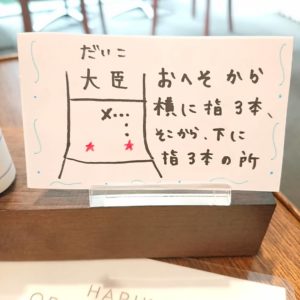 だいこ
大臣
おへそ から
横に指3本、
そこから、下に
指3本の所